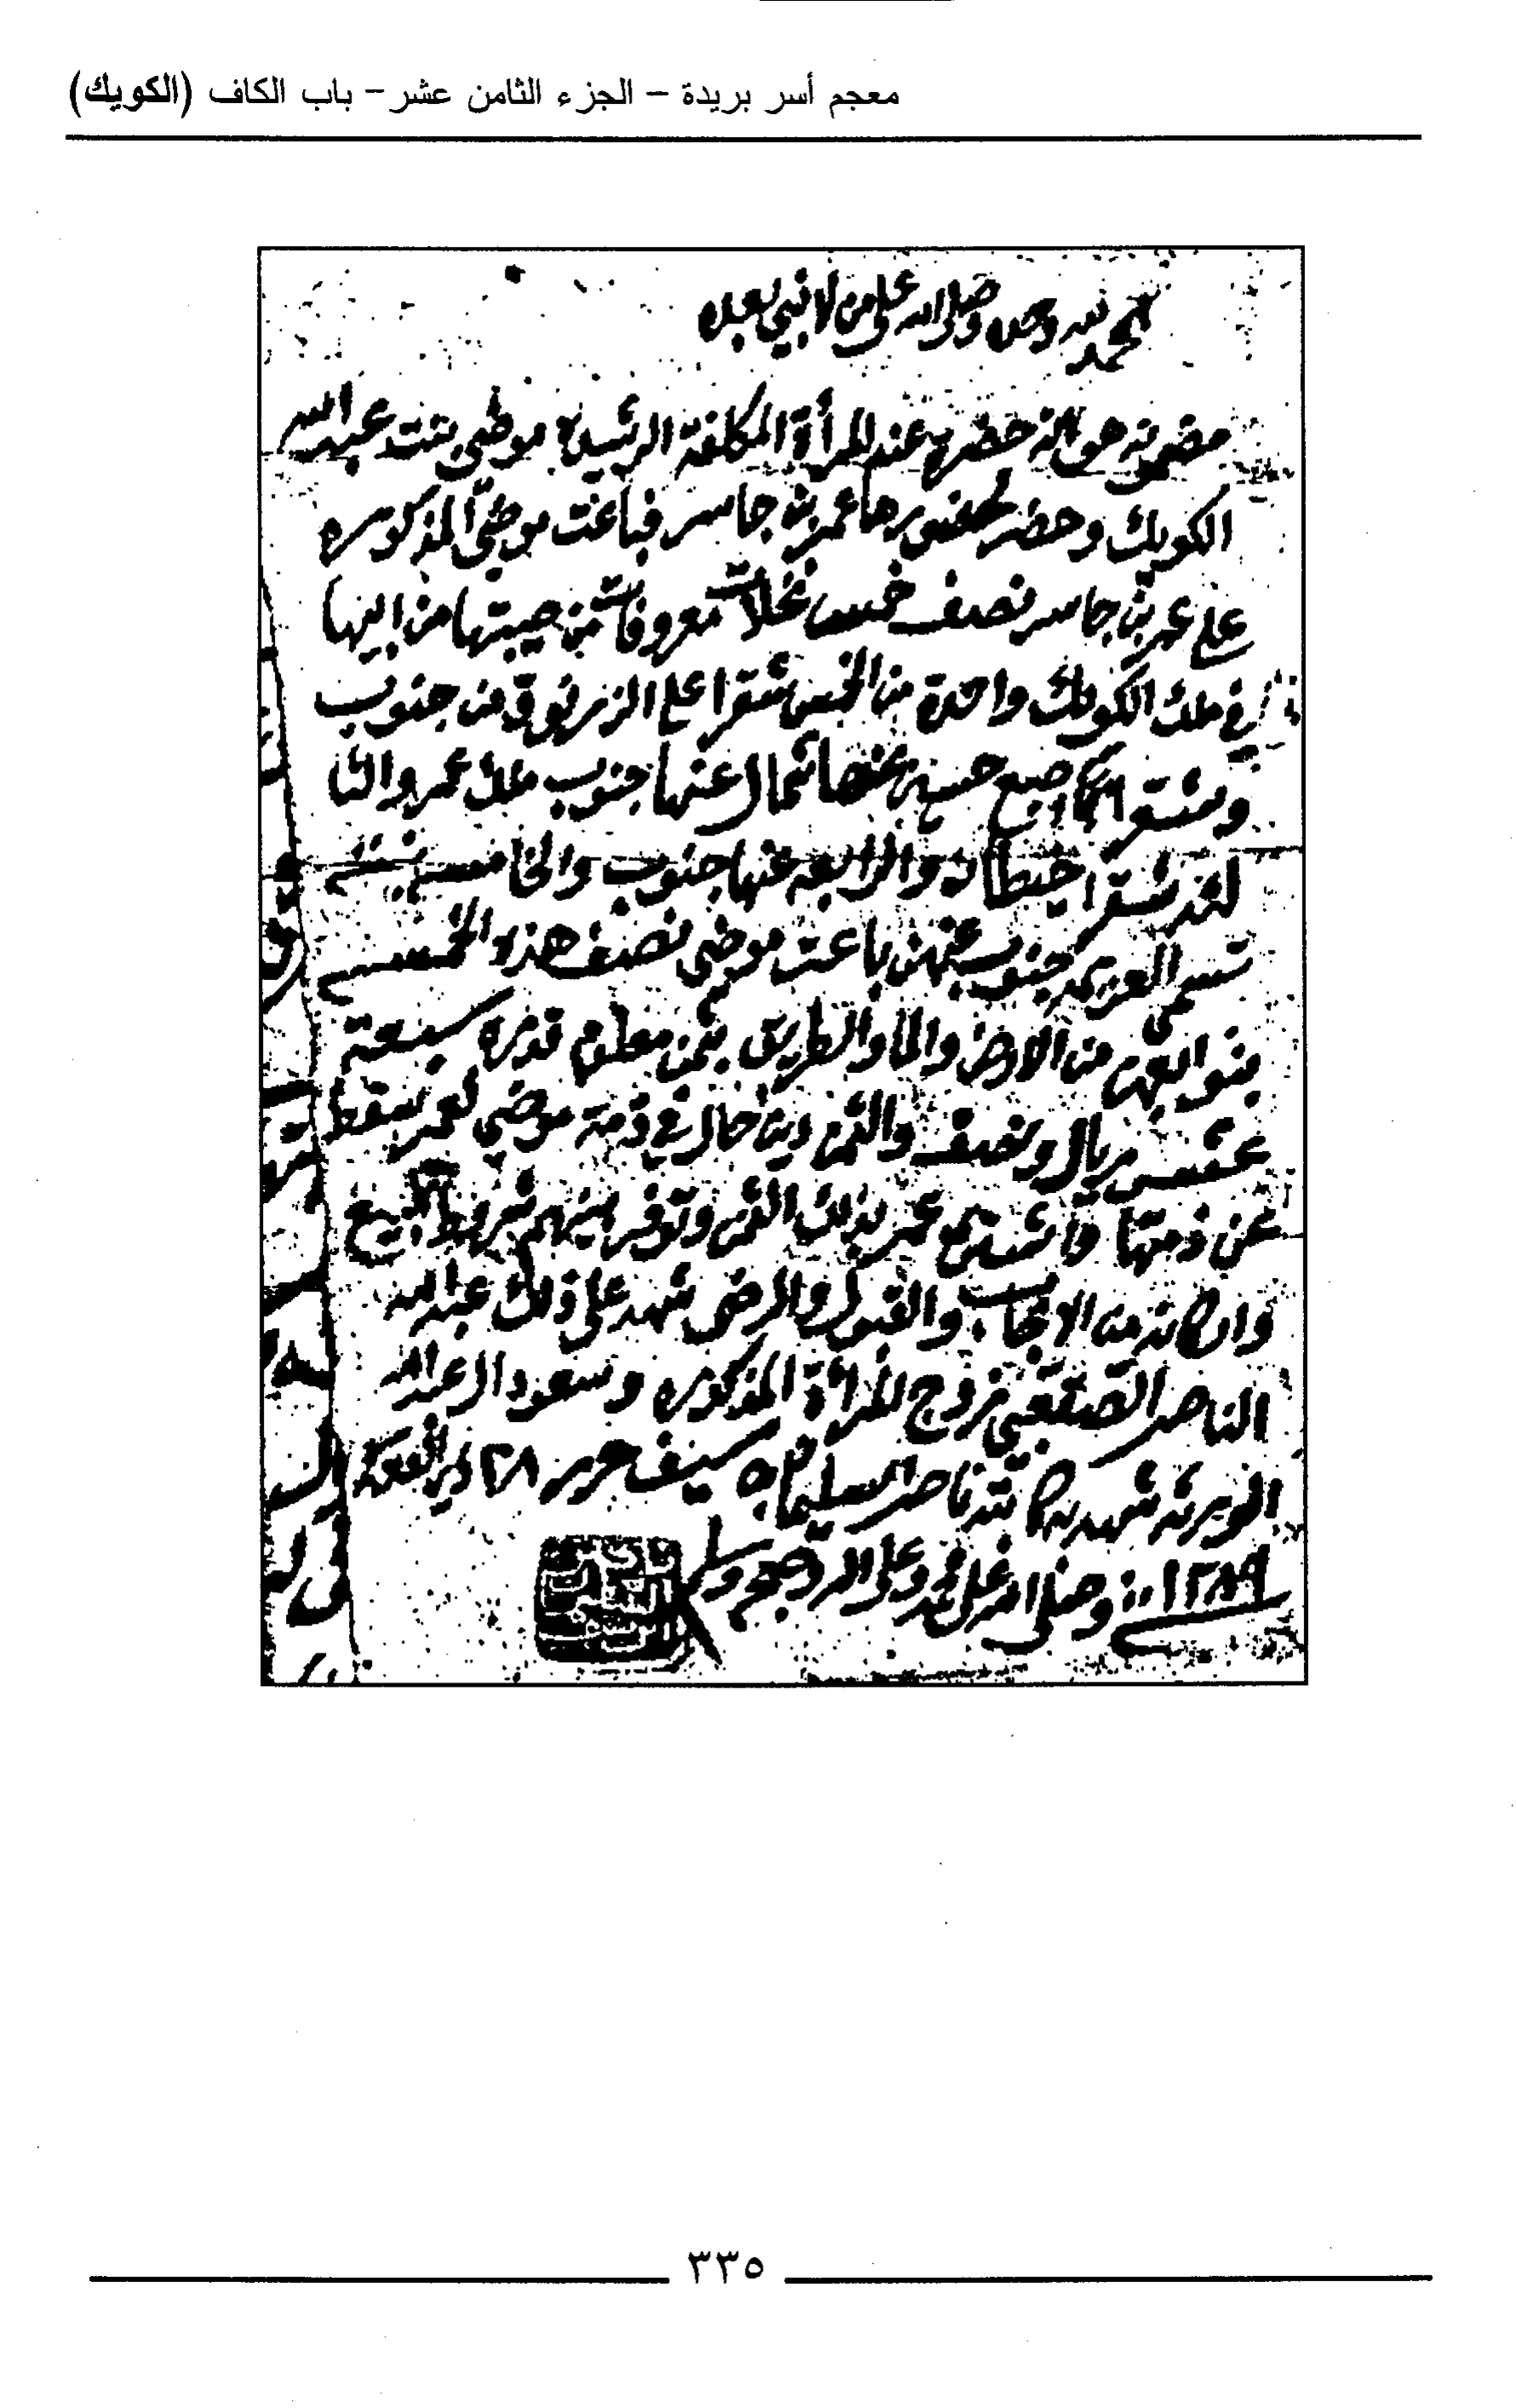 معجم أسر بريدة – الجزء الثامن عشر – باب الكاف (الكويك)
الحمد لله وحده وصلى الله على من لا نبي بعده
مضمونه هو انه حضر عند المرأة المكلفة الرشيده موضي بنت عبد الله
الكويك وحضر لحضورها عمر بن جاسر فباعت موضي المذكوره
على عمر بن جاسر نصف خمس نخلات معروفات من صيبتها من ابيها
في ملك الكويك واحدة من الخمس شقرا على الزرنوق من جنوب
وشقرا شمال عنها جنوب ملك عمر والثا
لثه شقرا والرابعه عنها جنوب والخامسه
تسمى جنوب عنهن باعت موضي نصف هذه الخمس
بتوابعهن من الارض والما والطريق بثمن معلوم قدره سبعة
عشر ريال ونصف والثمن دين حال في ذمة موضي لعمر سقط
عن ذمتها واشترى عمر بذلك الثمن وتوفر بينهم شروط البيع
واركانه من الايجاب والقبول والرضى شهد على ذلك عبد الله
الناصر الصقعبي زوج المرأة المذكوره وسعود ال عبد الله
شهد به كاتبه ناصر السليمان بن سيف حرر ٢٨ ذي القعدة
١٢٨٩ وصلى الله على محمد وعلى اله وصحبه وسلم
٣٣٥